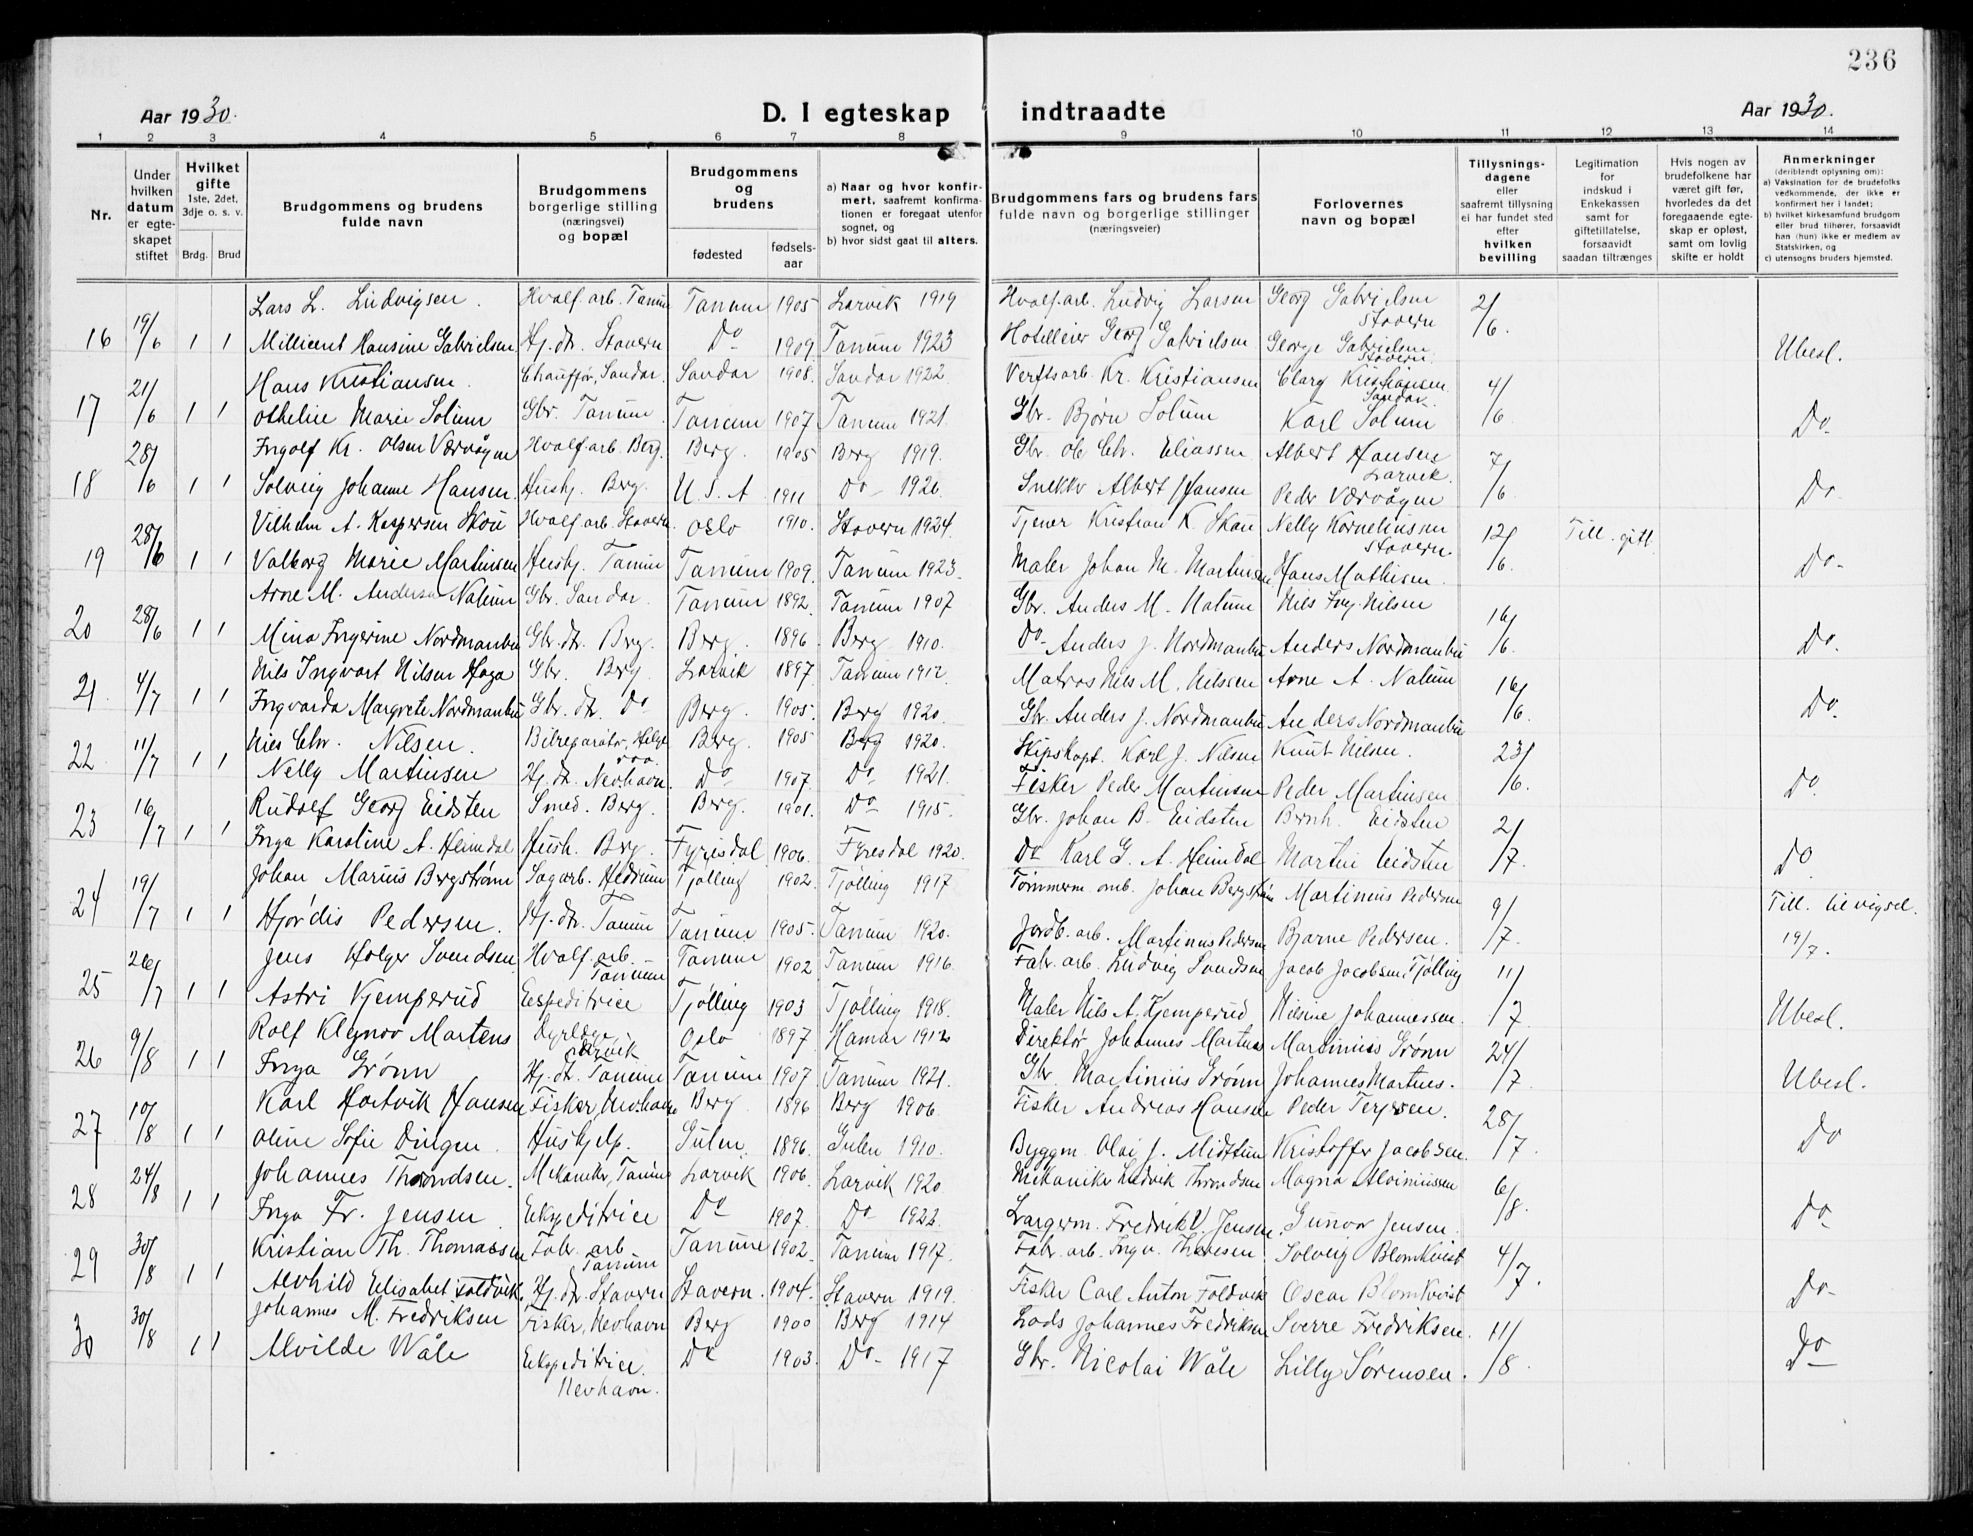 236
Aar 1930.
D. I egteskap indtraadte
Aar 1930.
1 2 3 4 5 6 7 8 9 10 11 12 13 14
Nr.
Under hvilken datum er egteskapet stiftet
Hvilket gifte 1ste, 2det, 3dje o. s. v.
Brdg. Brud
Brudgommens og brudens fulde navn
Brudgommens borgerlige stilling (næringsvei) og bopæl
Brudgommens og brudens
fødested
fødselsaar
a) Naar og hvor konfirmert, saafremt konfirmationen er foregaat utenfor sognet, og
b) hvor sidst gaat til alters.
Brudgommens fars og brudens fars fulde navn og borgerlige stillinger (næringsveier)
Forlovernes navn og bopæl
Tillysningsdagene eller saafremt tillysning ei har fundet sted efter hvilken bevilling
Legitimation for indskud i Enkekassen samt for giftetillatelse, forsaavidt saadan tiltrænges
Hvis nogen av brudefolkene har været gift før, hvorledes da det foregaaende egteskap er opløst, samt om lovlig skifte er holdt
Anmerkninger (deriblandt oplysning om):
a) Vaksination for de brudefolks vedkommende, der ikke er konfirmert her i landet;
b) hvilket kirkesamfund brudgom eller brud tilhører, forsaavidt han (hun) ikke er medlem av Statskirken, og
c) utensogns bruders hjemsted.
Lars L. Ludvigsen. Hvalf.arb. Tanum Tanum 1905 Larvik 1919 Hvalf.arb. Ludvig Larsen Georg Gabrielsen Stavern 2/6.
16 19/6 1 1 Millicent Hansine Gabrielsen Hj. dt. Stavern Do 1909 Tanum 1923 Hotelleier Georg Gabrielsen George Gabrielsen Stavern. Ubesl.
Hans Kristiansen. Chauffør, Sandar. Sandar 1908. Sandar 1922. Verftsarb. Kr. Kristiansen Clara Kristiansen Sandar. 4/6
17 21/6 1 1 Othelie Marie Solum Gbr. Tanum Tanum 1907 Tanum 1921. Gbr. Bjørn Solum Karl Solum Do.
Ingolf Kr. Olsen Værvågen Hvalf.arb. Berg. Berg. 1905 Berg 1919. Gbr. Ole Chr. Eliassen Albert Hansen Larvik. 7/6
18 28/6 1 1 Solveig Johanne Hansen. Hushj. Berg. U. S. A 1911 Do 1926 Snekker Albert Hansen Peder Værvågen Do.
Vilhelm A. Kaspersen Skou Hvalf.arb. Stavern. Oslo 1910. Stavern 1924. Tjener Kristian K. Skau Nelly Kornelinsen Stavern. 12/6 Till. gitt.
19 28/6 1 1 Valborg Marie Martinsen Hushj. Tanum Tanum 1909. Tanum 1923. Maler Johan M. Martinsen Hans Mathisen. Do-
Arne M. Andersen Nalum Gbr. Sandar. Tanum 1892. Tanum 1907 Gbr. Anders M. Nalum Nils Ing. Nilsen 16/6
20 28/6 1 1 Mina Ingerine Nordmanbu Gbr. dt. Berg. Berg. 1896 Berg 1910. Do- Anders J. Nordmanbu Anders Nordmanbu Do.
Nils Ingvart Nilsen Haga Gbr. Berg Larvik 1897 Tanum 1912. Matros Nils M. Nilssen Arne A. Nalum 16/6
21 4/7 1 1 Ingvarda Margrete Nordmanbu Gbr. dt. Do Berg. 1905. Berg 1920. Gbr. Anders J. Nordmanbu Anders Nordmanbu Do.
Nils Chr. Nilsen. Bilreparatør, Helgeroa Berg. 1905 Berg 1920. Skipskapt. Karl J. Nilsen Knut Nilsen. 23/6.
22 11/7 1 1 Nelly Martinsen Hj. dt. Nevhavn. Do 1907 Do 1921. Fisker Peder Martinsen Peder Martinsen Do.
Rudolf Georg Eidsten Smed. Berg. Berg. 1901. Do 1915. Gbr. Johan B. Eidsten Bernh. Eidsten 2/7.
23 16/7 1 1 Inga Karoline A. Heimdal Hush. Brg. Fyrisdal 1906. Fyresdal 1920. Do Karl G. A. Heimdal Martin Eidsten Do.
Johan Marius Bergstrøm Sagarb. Hedrum Tjølling 1902. Tjølling 1917 Tømmerm. omb. Johan Bergstrøm Martinius Pedersen 9/7. Till. til vigsel. 19/7.
24 19/7 1 1 Hjørdis Pedersen. Hj. dt. Tanum Tanum 1905. Tanum 1920. Jordb. arb. Martinus Pedersen Bjarne Pedersen.
Jens Holger Svendsen Hvalf. arb. Tanum Tanum 1902 Tanum 1916. Fabr. arb. Ludvig Svendsen Jacob Jacobsen Tjølling 11/7
25 26/7 1 1 Astri Kjemperud Eexpeditrice Tjølling 1903 Tjølling 1918. Maler Nils A. Kjemperud Nilsine Johannessen. Ubesl.
Rolf Klegnov Martens Dyrlæge, Larvik Oslo 1897 Hamar 1912 Direktør Johannes Martens Martinius Grønn 24/7.
26 9/8 1 1 Inga Grønn Hj. dt. Tanum Tanum 1907 Tanum 1921. Gbr. Martinius Grønn Johannes Martens. Ubesl.
Karl Hartvik Hansen Fisker, Nevhavn Berg 1896 Berg 1906. Fisker Andreas Hansen Peder Terjesen. 28/7.
27 10/8 1 1 Oline Sofie Dingen. Hushjelp. Gulen 1896. Gulen 1910. Byggm. Olai J. Midttun Kristoffer Jacobsen. Do
Johannes Throndsen. Mekaniker, Tanum Larvik 1906. Larvik 1920. Mekaniker Ludvik Throndsen Magna 6/8.
28 24/8 1 1 Inga Fr. Jensen. Eekspeditrice Do 1907. Do 1922. Largerm. Fredrik V. Jensen. Gunvor Jensen. Do.
Kristian Th. Thomassen Fabr. arb Tanum Tanum 1902. Tanum 1917. Fabr. arb. Ingv. Solveig Blomkvist 4/7.
29 30/8 1 1 Alvhild Elisabet Foldvik. Hj. dt. Stavern Stavern. 1904. Stavern 1919. Fisker Carl Anton Foldvik Oscar Blomkvist Do-
Johannes M. Fredriksen Fisker, Nevhavn Berg 1900 Berg 1914 Lods Johannes Fredriksen Sverre Fredriksen. 11/8.
30 30/8 1 1 Alvilde Wåle Eekspeditrice. Nevhavn. Do 1903. Do- 1917 Gbr. Nicolai Wåle Lilly Sørensen. Do